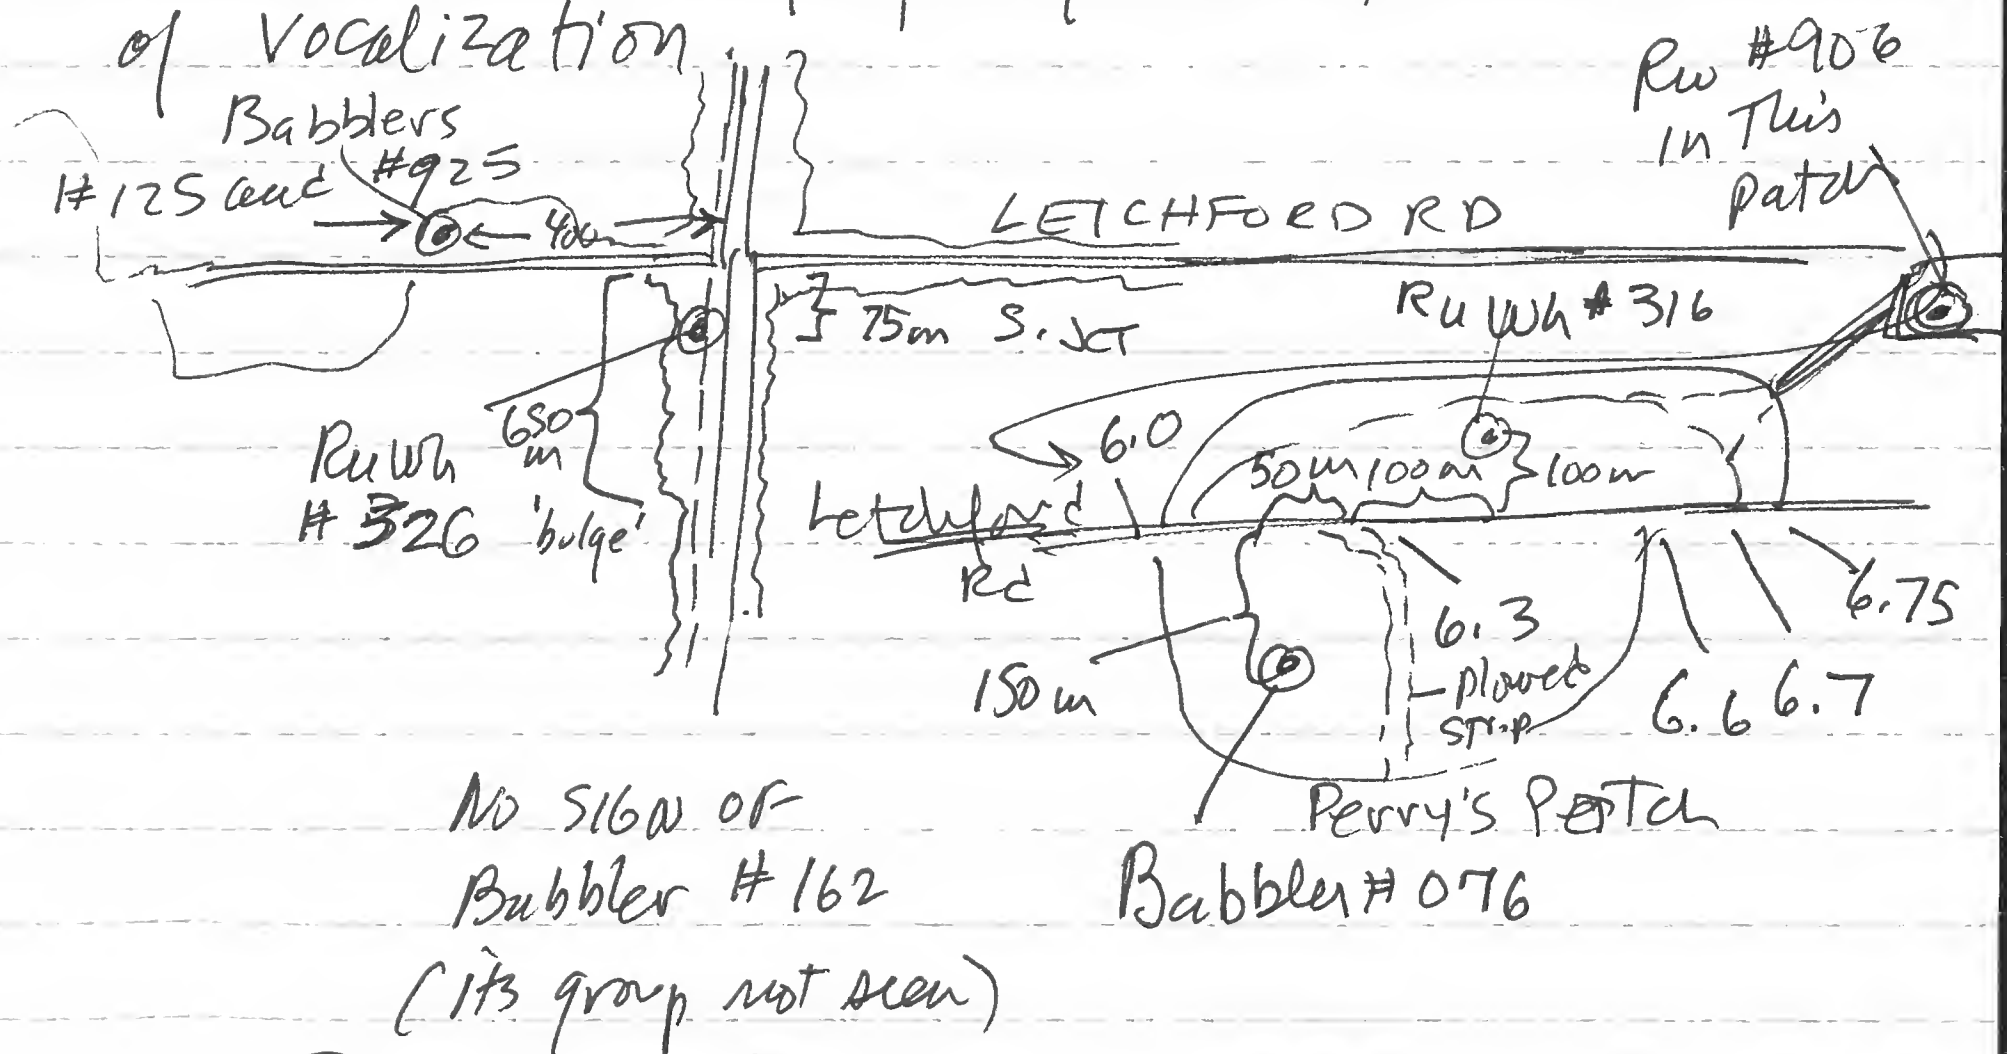 of Vocalization
Babblers
#125 and #925
400m
LETCHFORD RD
Rw #906
in This
patch
75m S. JCT
RuWh #316
650
m
RuWh
#326 'bulge'
6.0
50m 100m 100m
Letchford
Rd
150m
6.3
plowed
strip
6.6 6.7
6.75
Perry's Patch
No SIGN OF
Babbler #162
(its group not seen)
Babbler #076